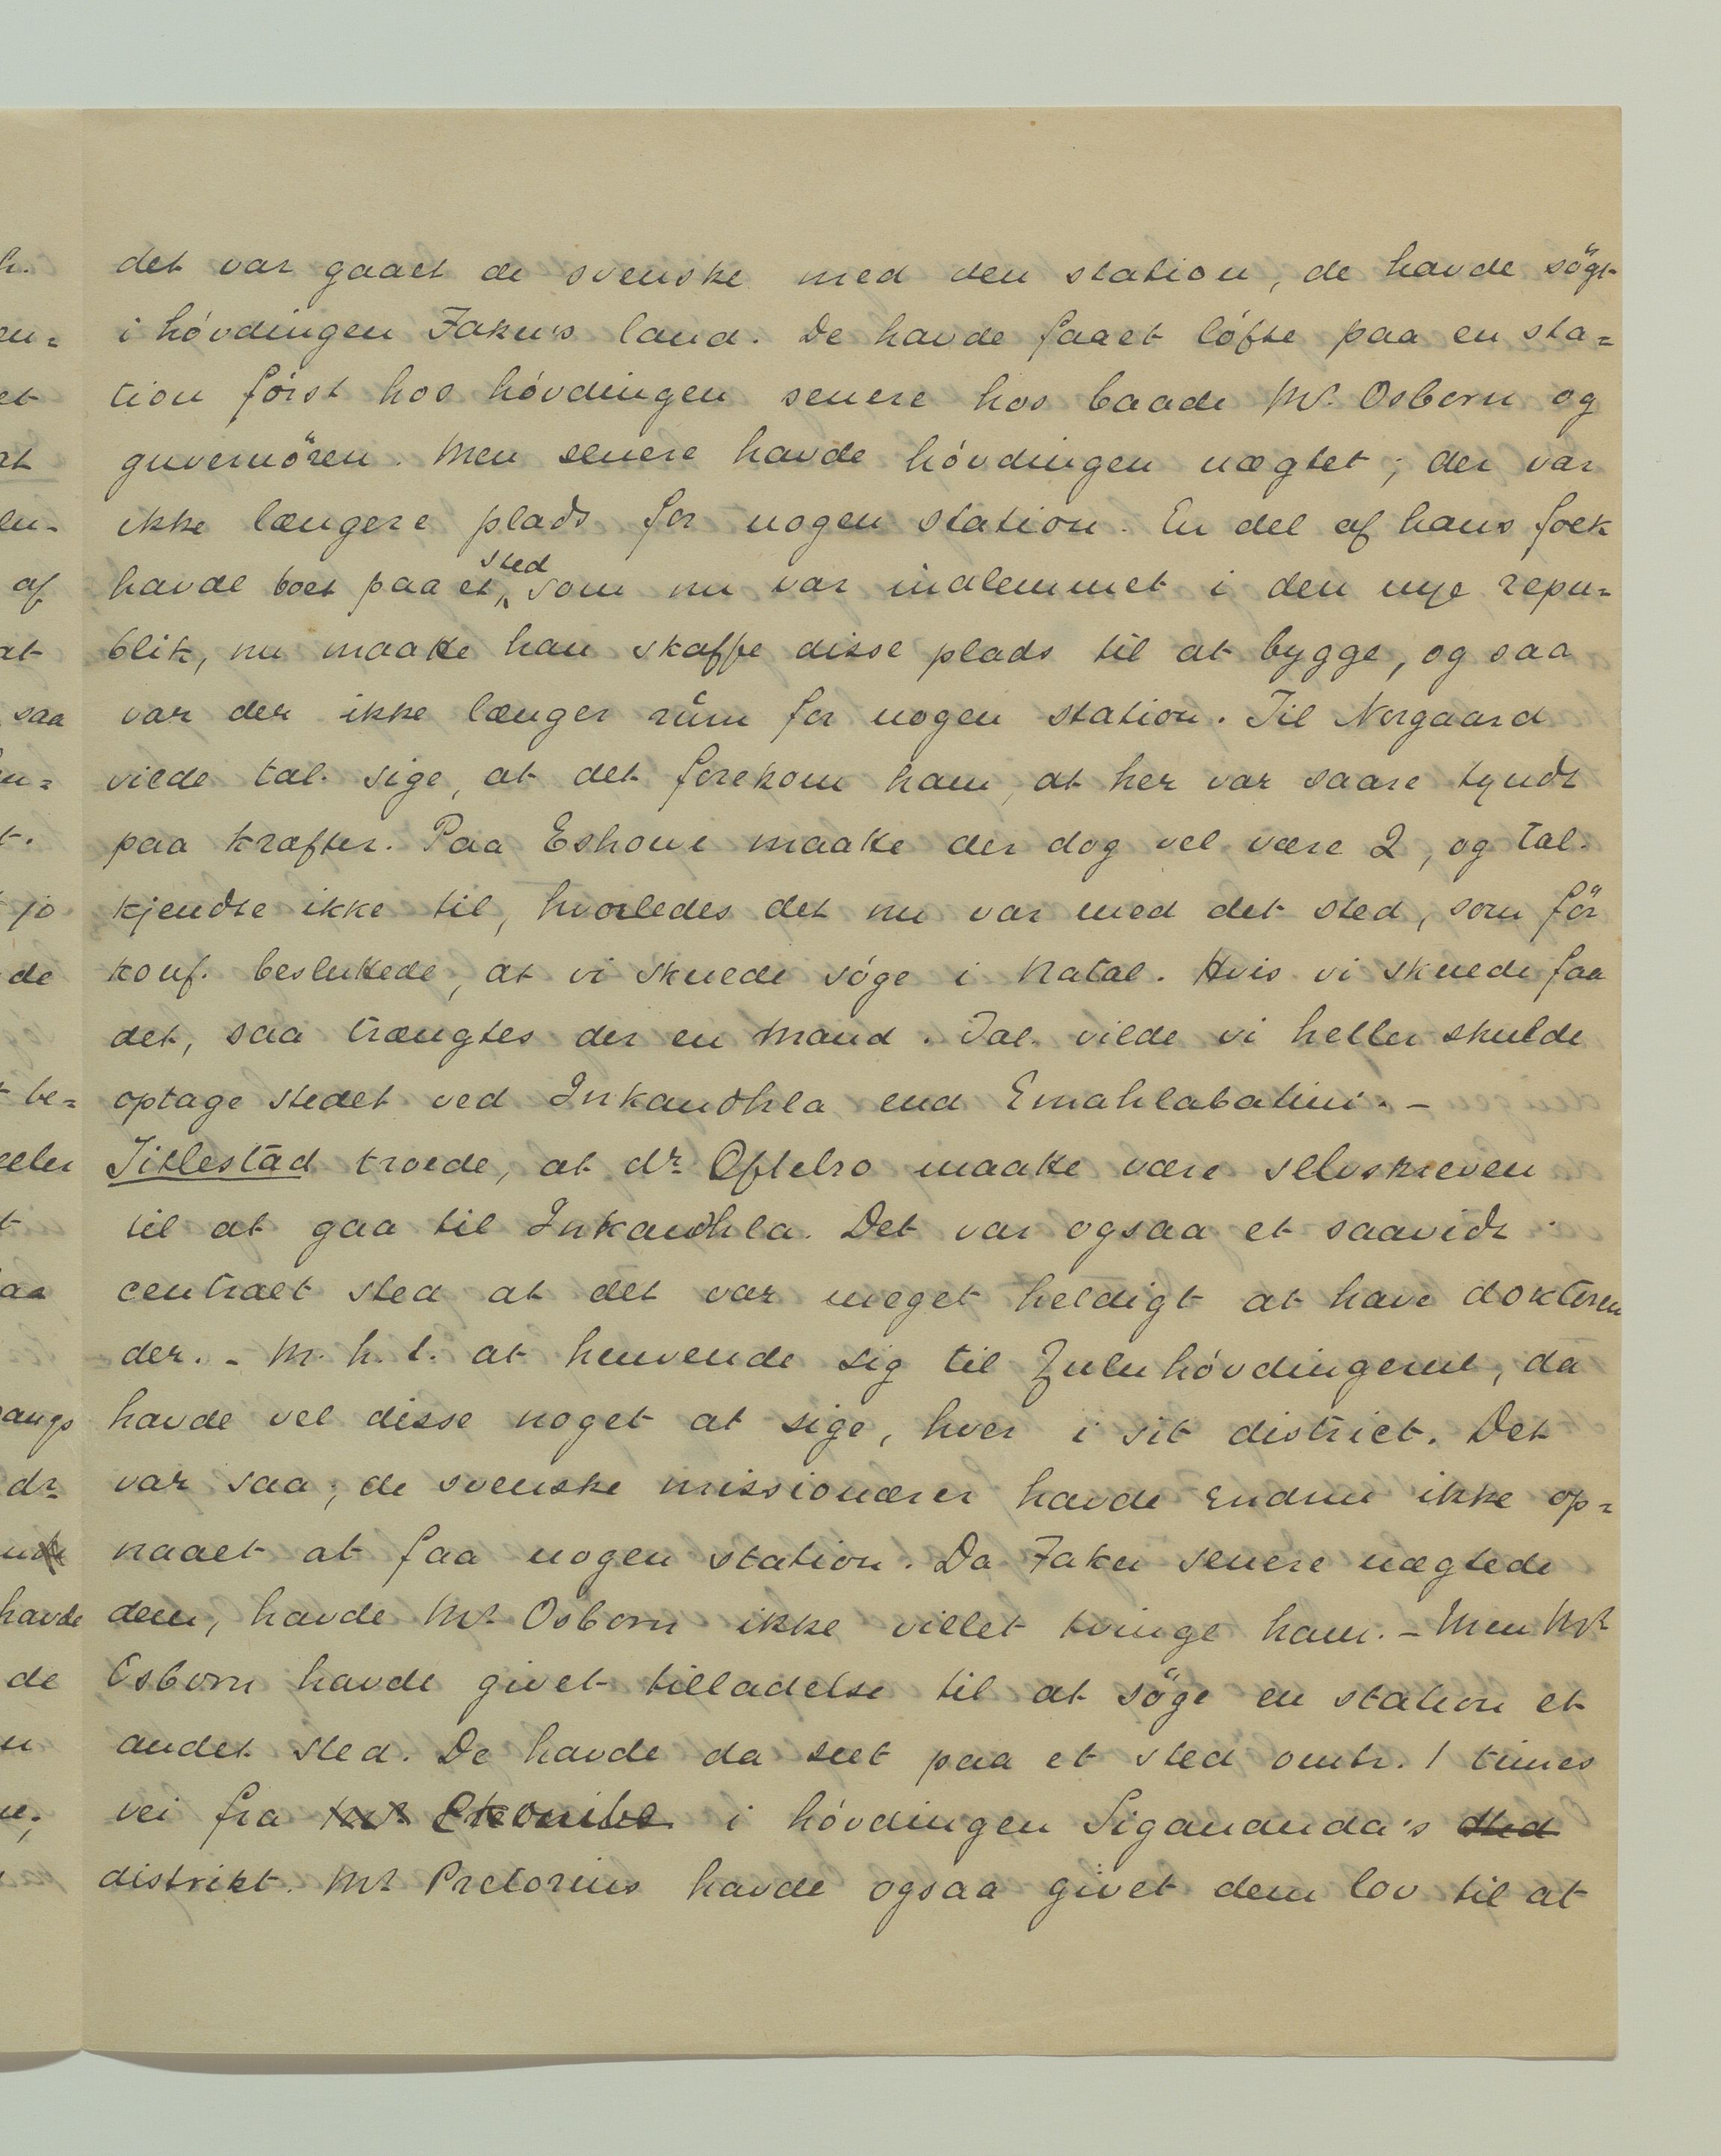 det var gaaet de svenske med den station, de havde søgt
i høvdingen Faku's land. De havde faaet løfte paa en sta=
tion først hos høvdingen senere hos baade Mr. Osborn og
guvernøren. Men senere havde høvdingen nægtet; der var
ikke længere plads for nogen station. En del af hans folk
havde boet paa et sted, som nu var indlemmet i den nye repu=
blik, nu maatte han skaffe disse plads til at bygge, og saa
var der ikke længer rum for nogen station. Til Norgaard
vilde tal. sige, at det forekom ham, at her var saare tyndt
paa kræfter. Paa Eshowe maatte der dog vel være 2, og tal.
kjendte ikke til, hvorledes det nu var med det sted, som før
konf. besluttede, at vi skulde søge i Natal. Hvis vi skulde faa
det, saa trængtes der en mand. Tal. vilde vi heller skulde
optage stedet ved Inkandhla end Emahlabatini. –
Titlestad troede, at dr. Oftebro maatte være selvskreven
til at gaa til Inkandhla. Det var ogsaa et saavidt
centralt sted at det var meget heldigt at have doktoren
der. – M. h. t. at henvende sig til Zuluhøvdingerne, da
havde vel disse noget at sige, hver i sit district. Det
var saa; de svenske missionærer havde endnu ikke op=
naaet at faa nogen station. Da Faku senere nægtede
dem, havde Mr. Osborn ikke villet tvinge ham. – Men Mr.
Osborn havde givet tilladelse til at søge en station et
andet sted. De havde da seet paa et sted omtr. 1 times
vei fra Mr. Ekombe i høvdingen Sigananda's sted
distrikt. Mr. Pretorius havde ogsaa givet dem lov til at